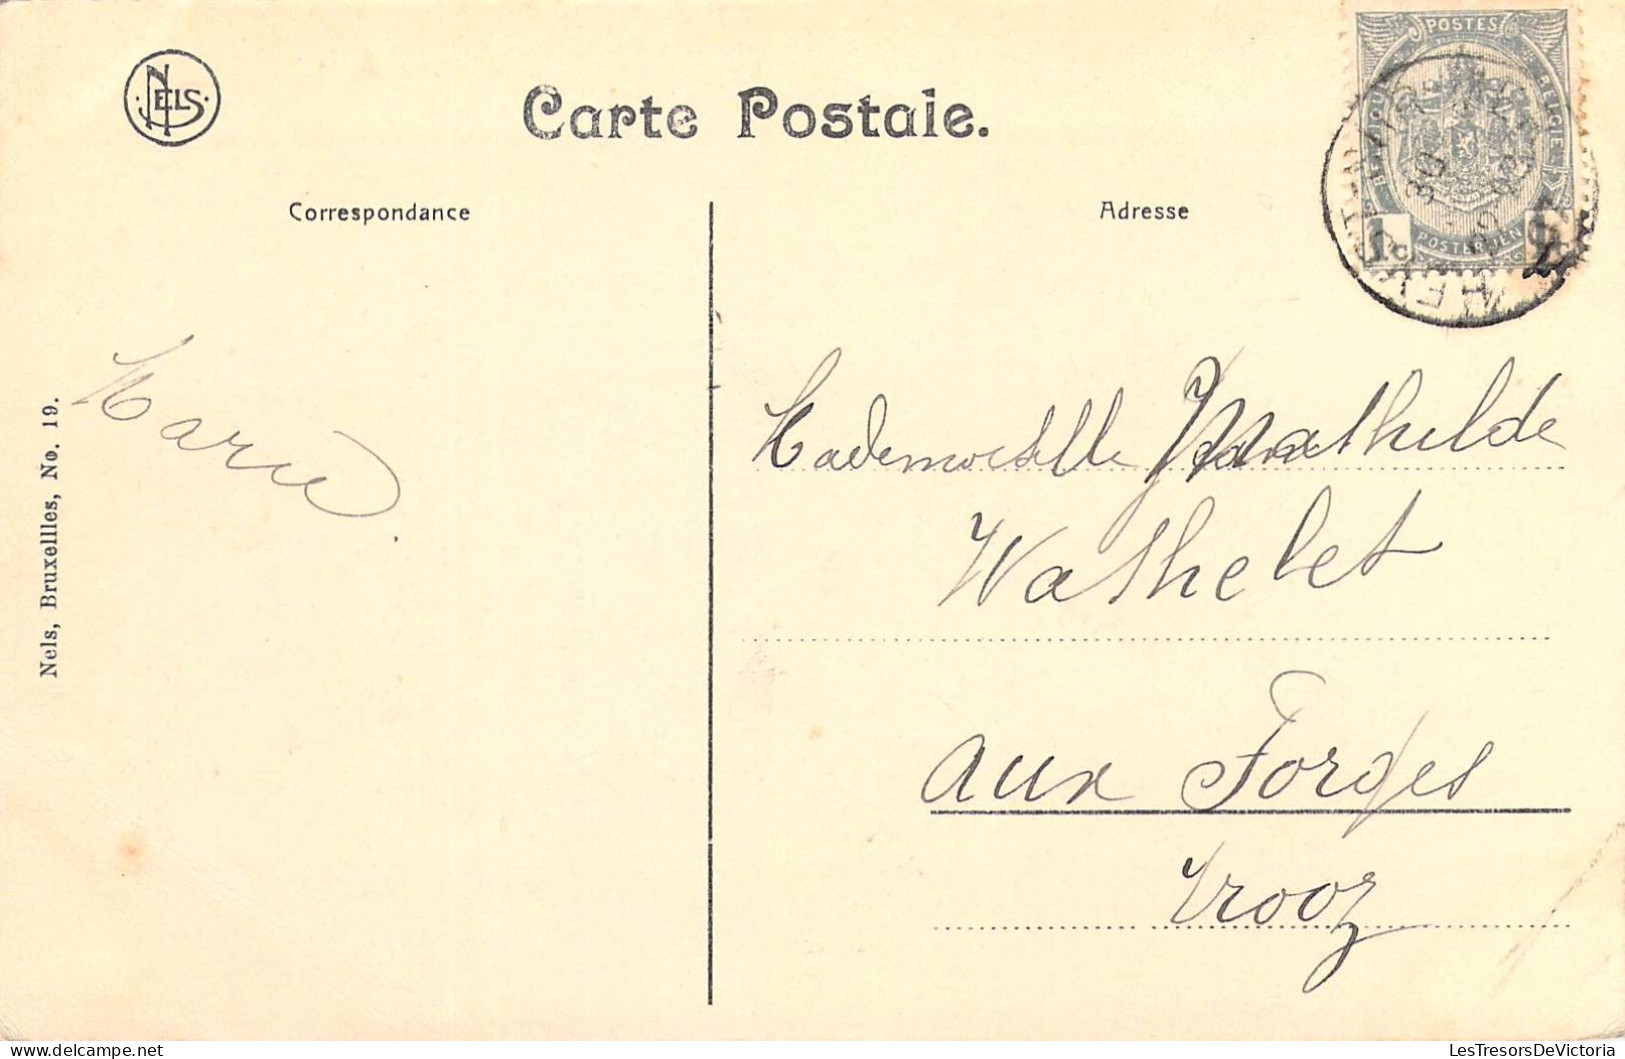 NELS
Carte Postale.
POSTES
BELGIQUE
BELGIË
POSTERIJEN
1c
Correspondance
Adresse
Marie.
Mademoiselle Mathilde
Wathelet
aux Forges
Trooz
Nels, Bruxelles, No. 19.
LesTresorsDeVictoria